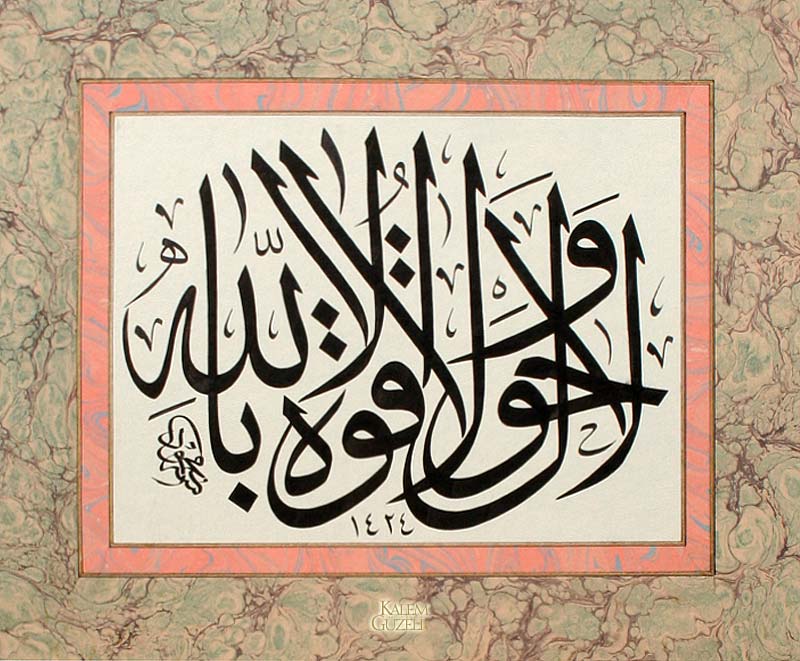 لا حول ولا قوة إلا بالله
١٤٢٤
KALEM
GÜZELİ